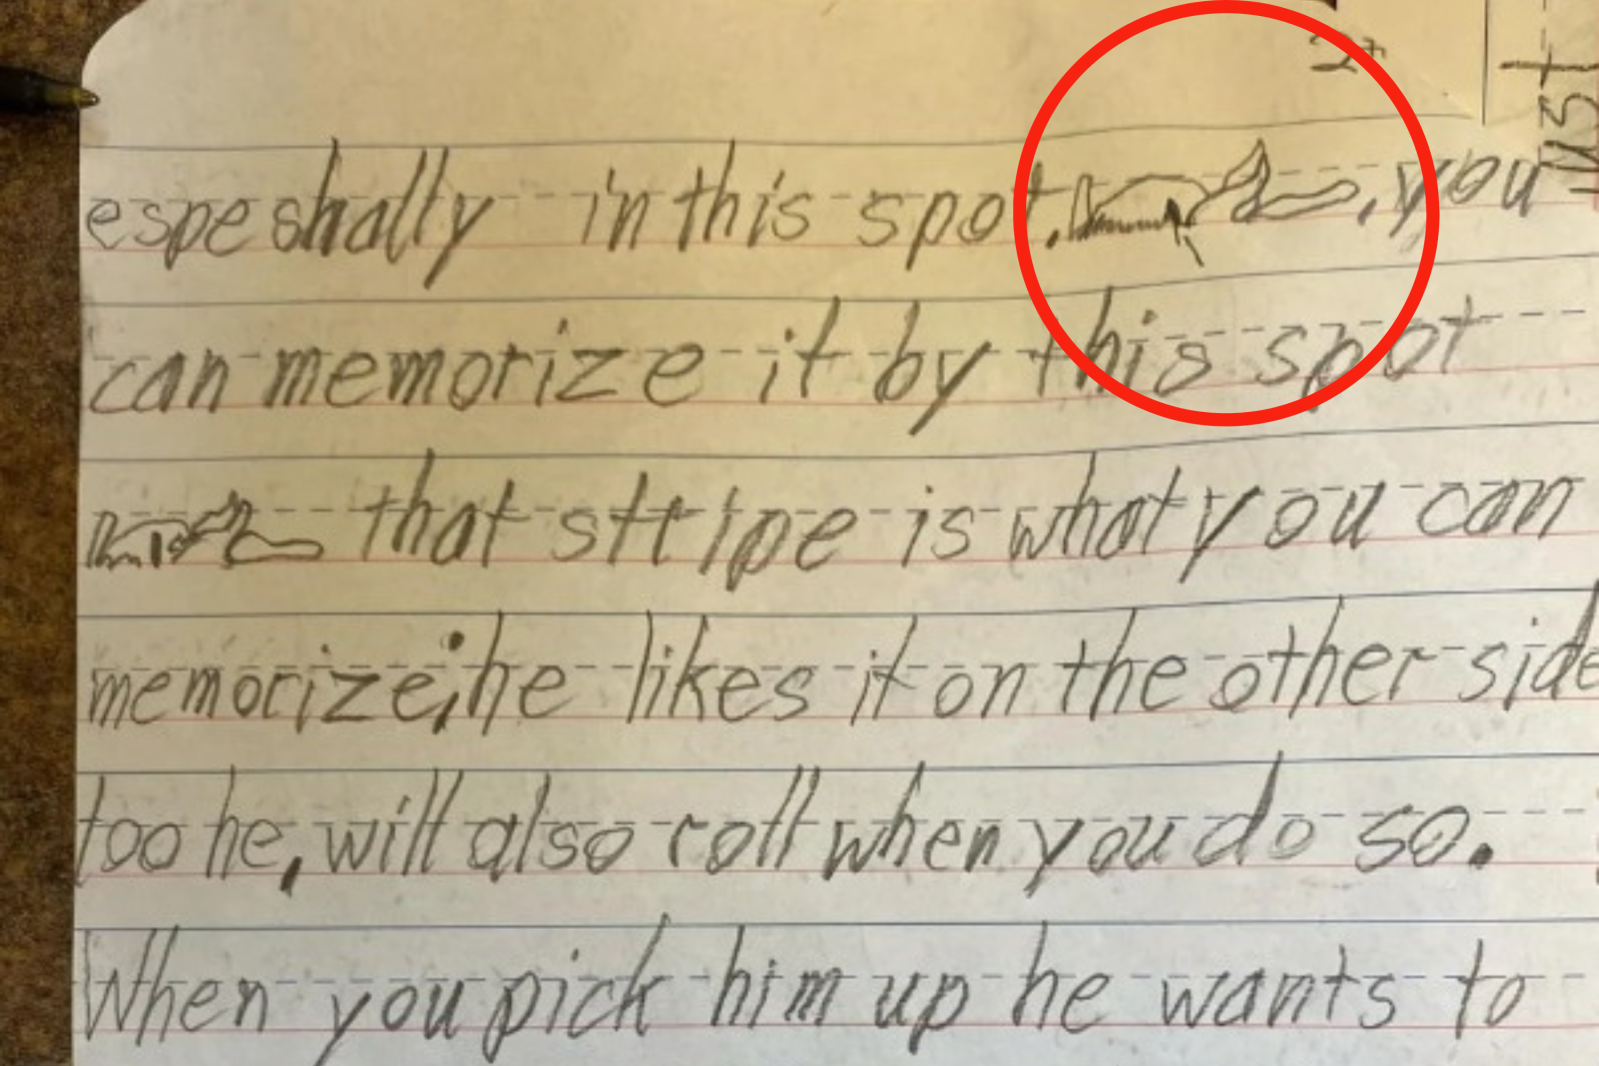 2+
ust
especshally in this spot. , you
can memorize it by this spot
that stripe is what you can
memorize; he likes it on the other side
too he, will also roll when you do so.
When you pick him up he wants to